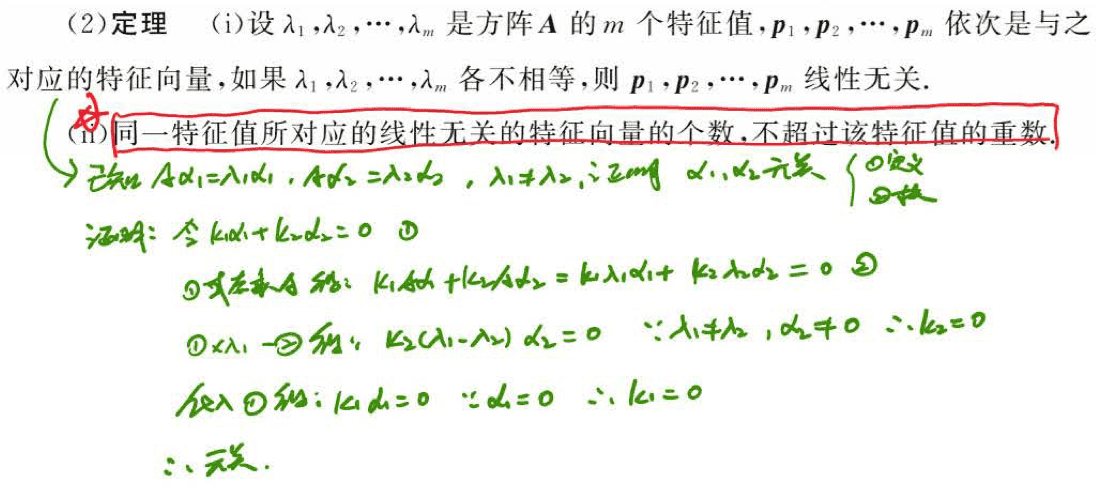 (2)定理 (i)设 λ₁,λ₂,⋯,λₘ 是方阵 A 的 m 个特征值,p₁,p₂,⋯,pₘ 依次是与之
对应的特征向量,如果 λ₁,λ₂,⋯,λₘ 各不相等,则 p₁,p₂,⋯,pₘ 线性无关.
(ii)同一特征值所对应的线性无关的特征向量的个数,不超过该特征值的重数.
已知 Aα₁=λ₁α₁,Aα₂=λ₂α₂,λ₁≠λ₂,证明 α₁,α₂无关 { ①定义 ②秩
证明: 令 k₁α₁+k₂α₂=0 ①
①式左乘A得: k₁Aα₁+k₂Aα₂=k₁λ₁α₁+k₂λ₂α₂=0 ②
①×λ₁-②得: k₂(λ₁-λ₂)α₂=0 ∵λ₁≠λ₂,α₂≠0 ∴k₂=0
代入①得: k₁α₁=0 ∵α₁=0 ∴k₁=0
∴无关.